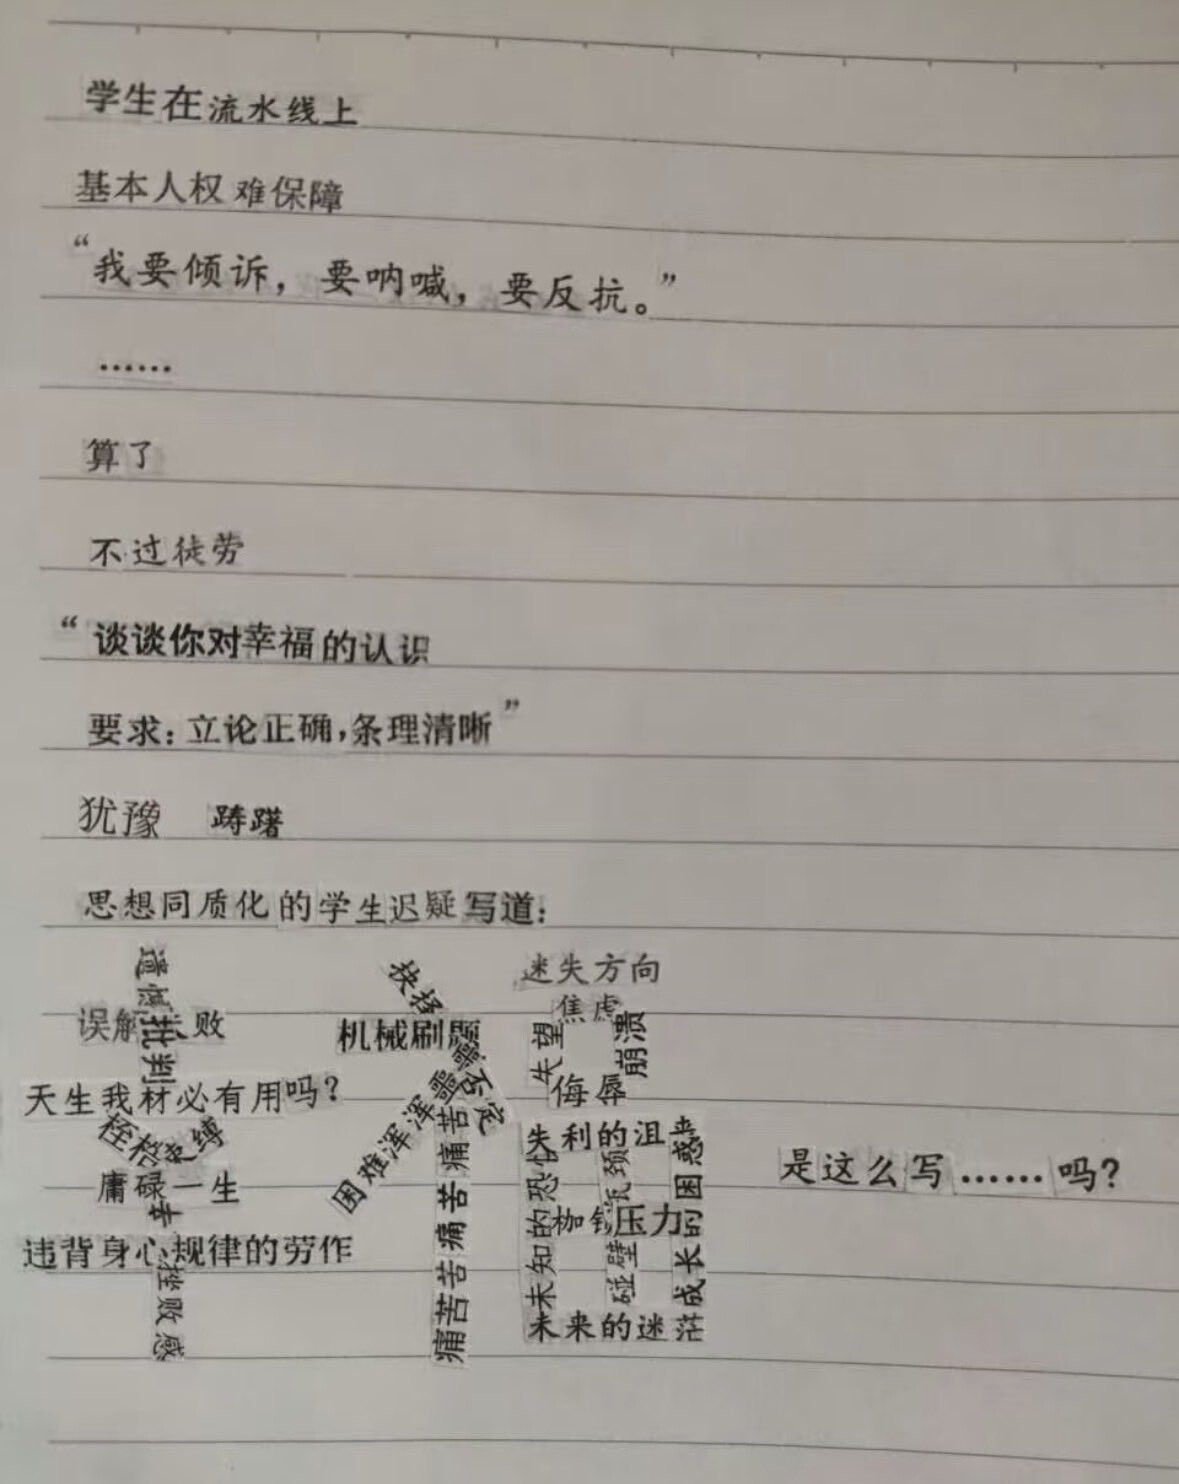 学生在流水线上
基本人权难保障
“我要倾诉，要呐喊，要反抗。”
……
算了
不过徒劳
“谈谈你对幸福的认识
要求：立论正确，条理清晰”
犹豫 踌躇
思想同质化的学生迟疑写道：
遗憾
误解 败
批判
天生我材必有用吗？
桎梏
束缚
庸碌一生
违背身心规律的劳作
挫败感
抉择
机械刷题
否定
困难浑浑噩噩
痛苦苦痛苦痛苦
迷失方向
焦虑
失望
崩溃
侮辱
失利的沮丧
未知的恐惧
瓶颈
枷锁
压力
碰壁
成长的困惑
未来的迷茫
是这么写……吗？